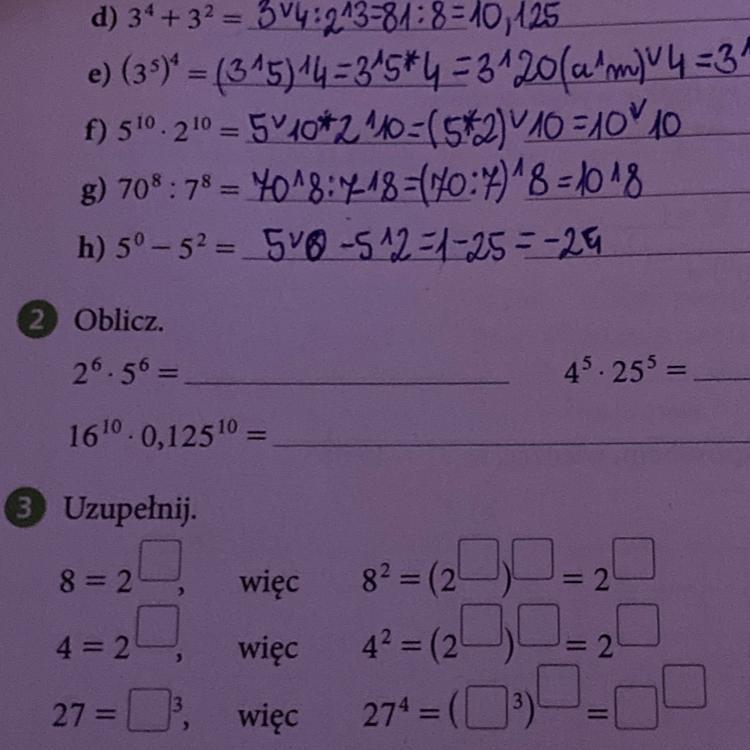 d) 3⁴ + 3² = 3^4:2^3=81:8=10,125
e) (3⁵)⁴ = (3^5)^4=3^5*4=3^20(a^m)^4=3^
f) 5¹⁰ · 2¹⁰ = 5^10*2^10=(5*2)^10=10^10
g) 70⁸ : 7⁸ = 70^8:7^8=(70:7)^8=10^8
h) 5⁰ − 5² = 5^0-5^2=1-25=-24
2 Oblicz.
2⁶ · 5⁶ = 4⁵ · 25⁵ =
16¹⁰ · 0,125¹⁰ =
3 Uzupełnij.
8 = 2□, więc 8² = (2□)□ = 2□
4 = 2□, więc 4² = (2□)□ = 2□
27 = □³, więc 27⁴ = (□³)□ = □□